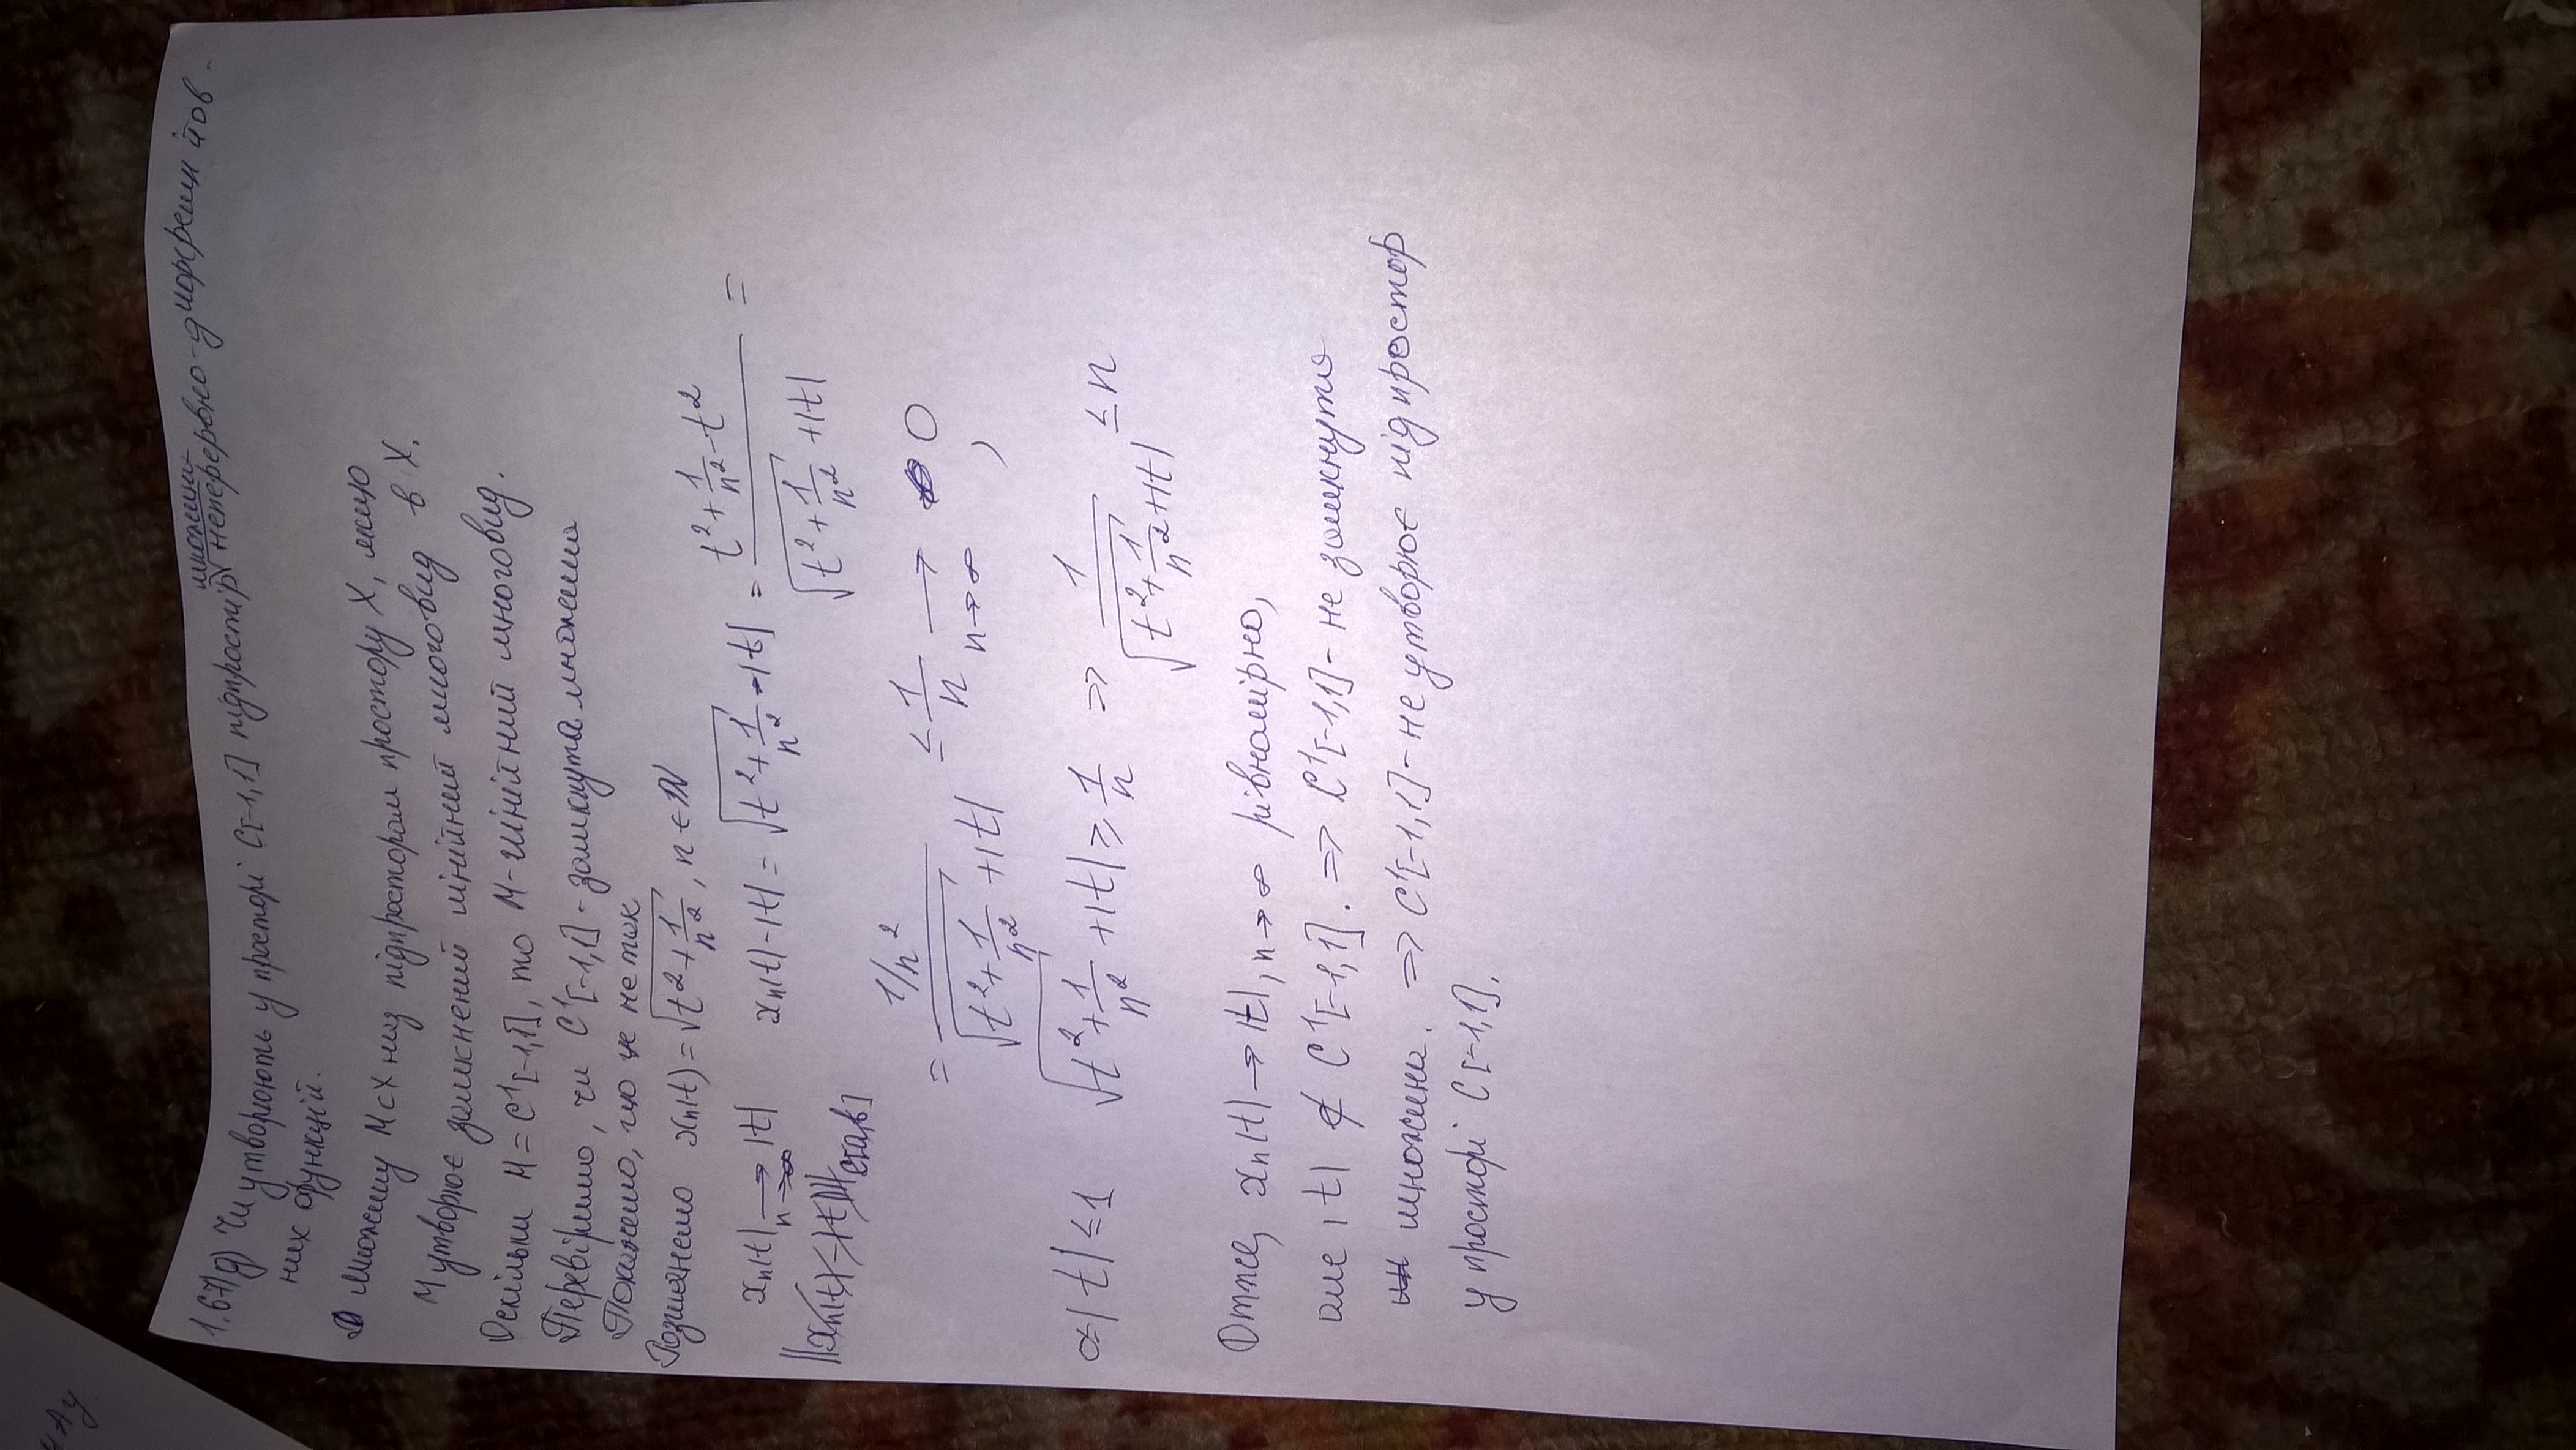 4 Ay
1.67д) Чи утворюють у просторі C[-1,1] підпростір множини неперервно-диференційов-
них функцій.
Множину M⊂X наз підпростором простору X, якщо
M утворює замкнений лінійний многовид в X.
Оскільки M = C¹[-1,1], то M - лінійний многовид.
Перевіримо, чи C¹[-1,1] - замкнута множина
Покажемо, що це не так
Розглянемо xₙ(t) = √(t² + 1/n²), n ∈ ℕ
xₙ(t) →_{n→∞} |t| xₙ(t) - |t| = √(t² + 1/n²) - |t| = (t² + 1/n² - t²)/(√(t² + 1/n²) + |t|) =
||xₙ(t) - |t|||_{C[a,b]}
= (1/n²)/(√(t² + 1/n²) + |t|) ≤ 1/n →_{n→∞} 0,
|t| ≤ 1 √(t² + 1/n²) + |t| ≥ 1/n ⇒ 1/(√(t² + 1/n²) + |t|) ≤ n
Отже, xₙ(t) → |t|, n→∞ рівномірно,
але |t| ∉ C¹[-1,1]. ⇒ C¹[-1,1] - не замкнута
множина. ⇒ C¹[-1,1] - не утворює підпростор
у просторі C[-1,1].